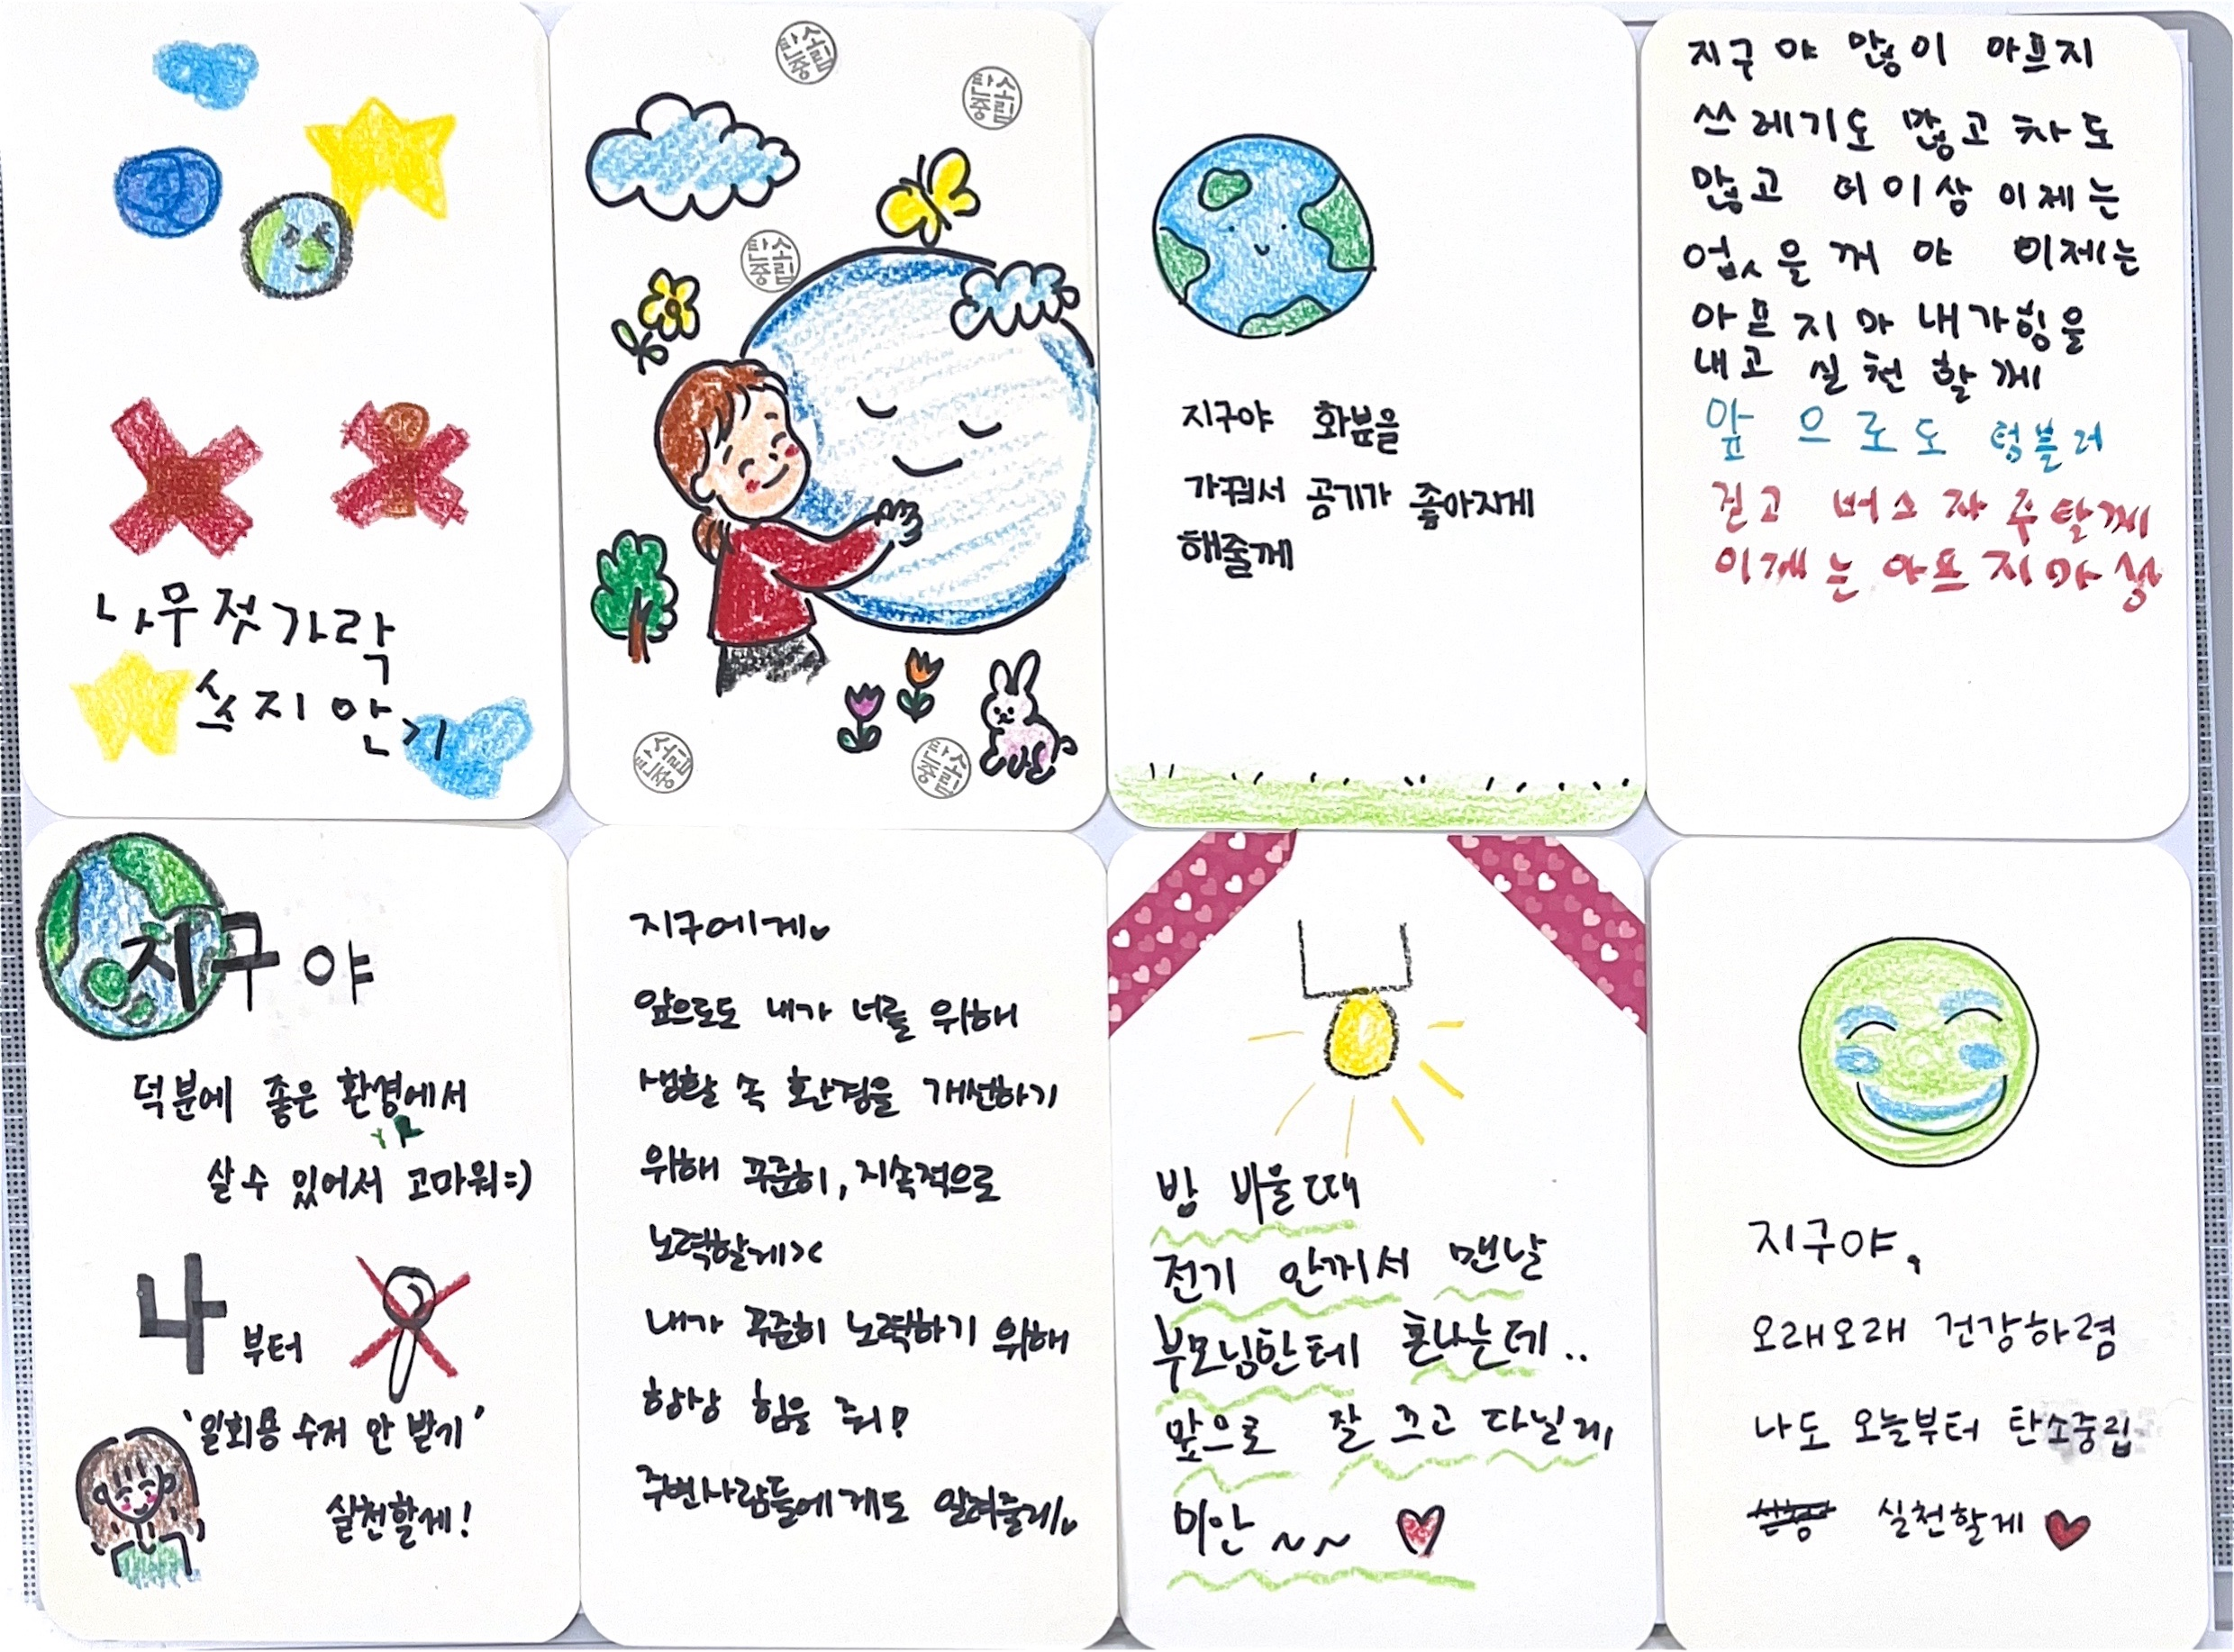 나무젓가락
쓰지안기
탄소
중립
탄소
중립
탄소
중립
탄소
중립
지구야 화분을
가꿔서 공기가 좋아지게
해줄께
지구야 많이 아프지
쓰레기도 많고 차도
많고 더이상 이제는
업ㅅ을꺼야 이제는
아프지마 내가힘을
내고 실천할께
앞으로도 텀블러
걷고 버스자주탈께
이제는아프지마
지구야
덕분에 좋은 환경에서
살수 있어서 고마워=)
나부터
'일회용 수저 안 받기'
실천할게!
지구에게♥
앞으로도 내가 너를 위해
생활 속 환경을 개선하기
위해 꾸준히, 지속적으로
노력할게><
내가 꾸준히 노력하기 위해
항상 힘을 줘!
주변사람들에게도 알려줄게♥
방 비울때
전기 안꺼서 맨날
부모님한테 혼나는데..
앞으로 잘 끄고 다닐게,
미안~~ ♥
지구야,
오래오래 건강하렴
나도 오늘부터 탄소중립
실천할게 ♥